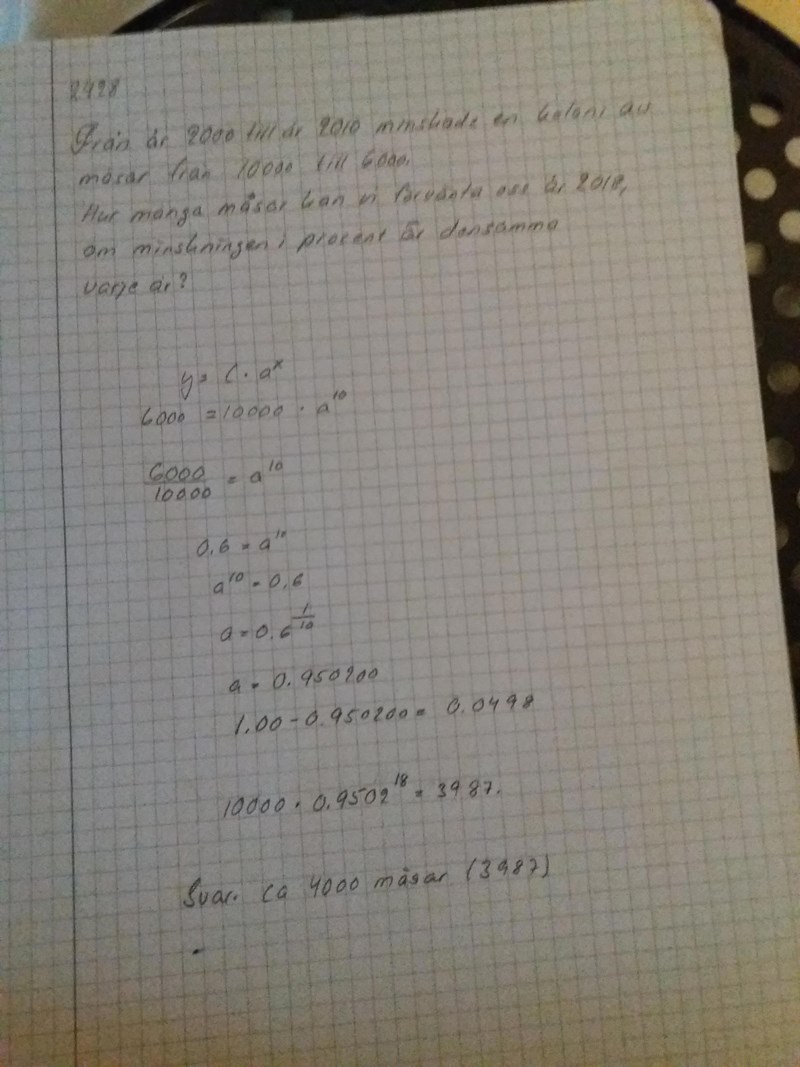 2428
Från år 2000 till år 2010 minskade en koloni av
måsar från 10000 till 6000.
Hur många måsar kan vi förvänta oss år 2018,
om minskningen i procent är densamma
varje år?
y = C · a^x
6000 = 10000 · a^10
6000/10000 = a^10
0,6 = a^10
a^10 = 0,6
a = 0.6^1/10
a = 0.950200
1.00 - 0.950200 = 0.0498
10000 · 0.9502^18 = 3987.
Svar. ca 4000 måsar (3987)